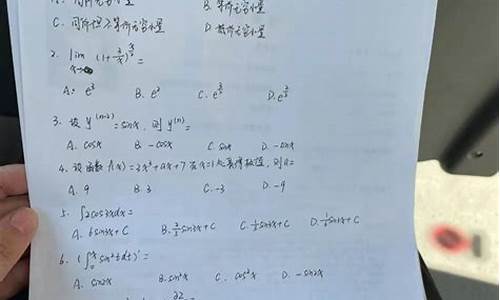 A. 同阶无穷小量 B. 等价无穷小量
C. 同阶但不等价无穷小量 D. 高阶无穷小量
2. lim (1+
)
=
A. e³ B. e² C. e D. e
3. 设 y⁽ⁿ⁻²⁾=sinx, 则 y⁽ⁿ⁾=
A. cosx B. -cosx C. sinx D. -sinx
4. 设函数 f(x)=2x³+ax+7 在x=1处取得极值, 则a=
A. 9 B. 3 C. -3 D. -9
5. ∫2cos3xdx=
A. 6sin3x+C B. 2/3 sin3x+C C. 1/3 sin3x+C D. 1/6 sin3x+C
6. (∫₀ˣ sin²tdt)'=
A. sin2x B. sin²x C. cos²x D. -sin2x